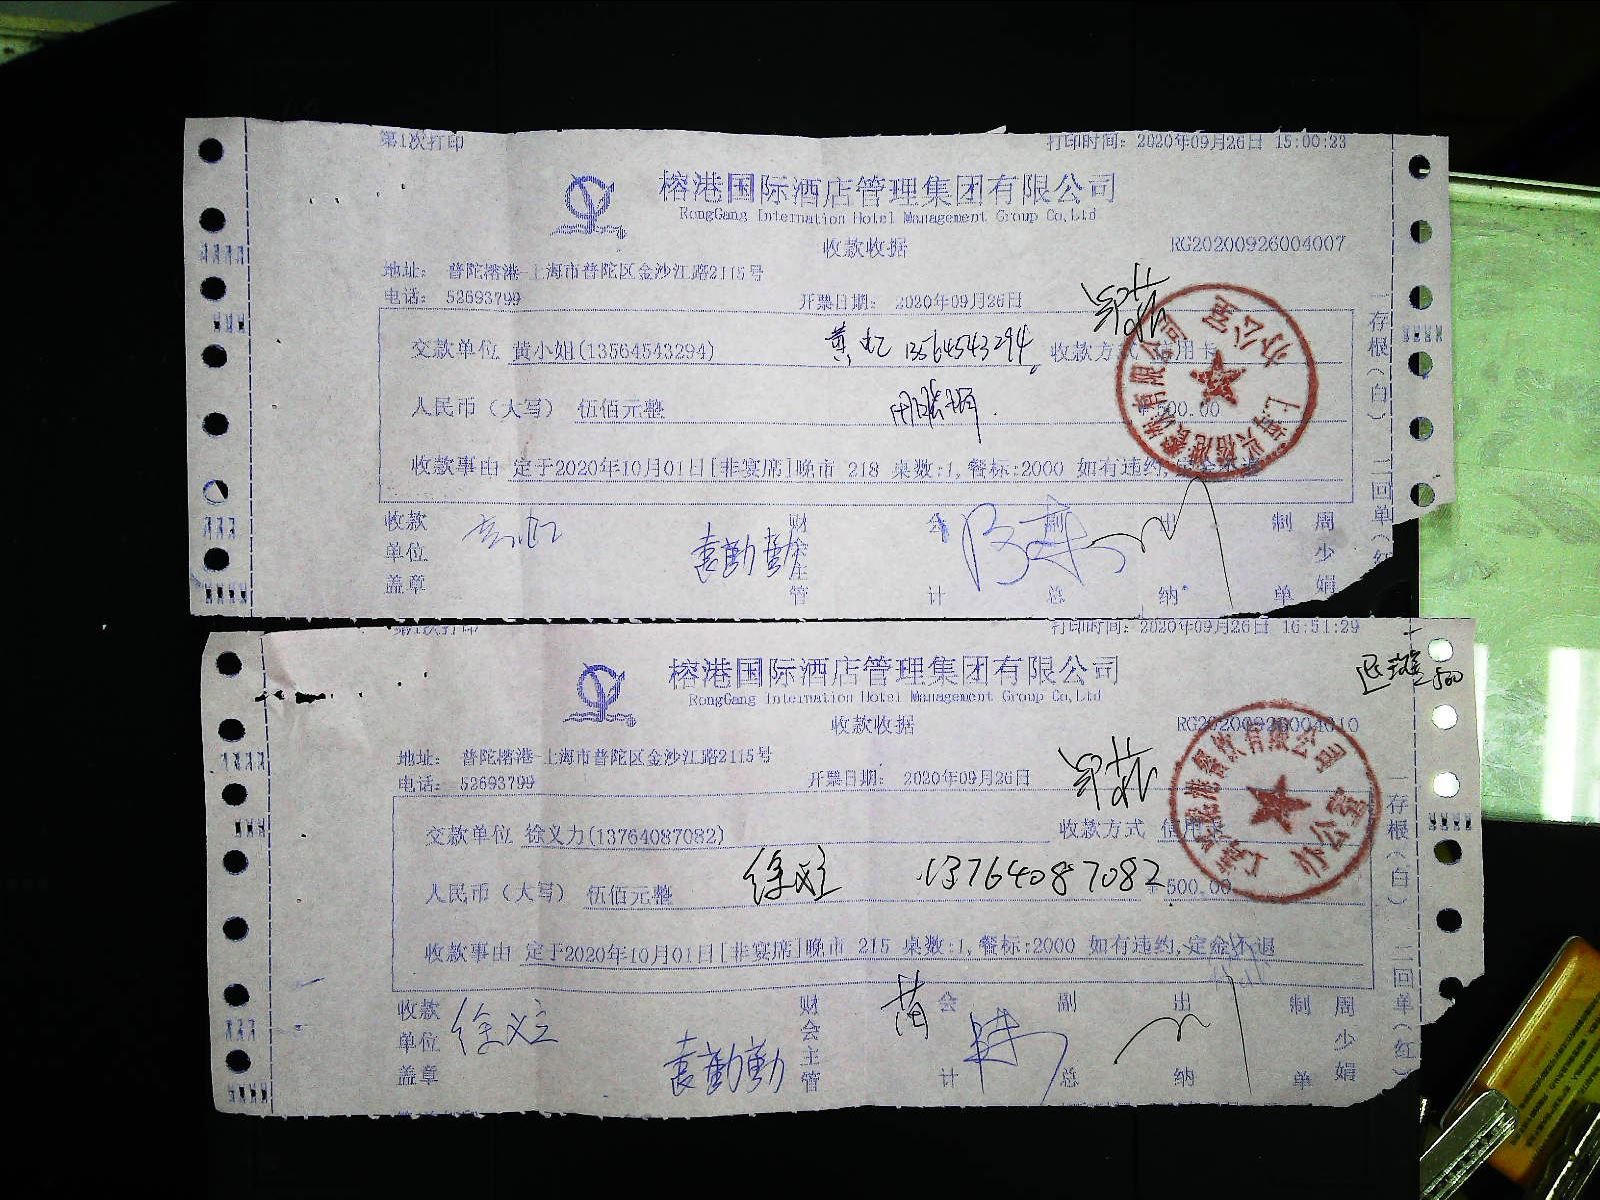 第1次打印 打印时间: 2020年09月26日 15:00:23
榕港国际酒店管理集团有限公司
RongGang Internation Hotel Management Group Co,Ltd
收款收据 RG20200926004007
地址: 普陀榕港-上海市普陀区金沙江路2115号
电话: 52693799 开票日期: 2020年09月26日
交款单位 黄小姐(13564543294) 13564543294 收款方式 信用卡
人民币（大写） 伍佰元整 ¥500.00
收款事由 定于2020年10月01日[非宴席]晚市 218 桌数:1,餐标:2000 如有违约,定金不退
收款单位盖章 袁勤勤 财会主管 会计 副总 出纳 制单 周少娟
存根（白） 二回单（红
第1次打印 打印时间: 2020年09月26日 16:51:29
榕港国际酒店管理集团有限公司
RongGang Internation Hotel Management Group Co,Ltd
-500
收款收据 RG20200926004010
地址: 普陀榕港-上海市普陀区金沙江路2115号
电话: 52693799 开票日期: 2020年09月26日
交款单位 徐义力(13764087082) 收款方式 信用卡
人民币（大写） 伍佰元整 13764087082 ¥500.00
收款事由 定于2020年10月01日[非宴席]晚市 215 桌数:1,餐标:2000 如有违约,定金不退
收款单位盖章 袁勤勤 财会主管 会计 副总 出纳 制单 周少娟
一存根（白） 二回单（红）
办公室